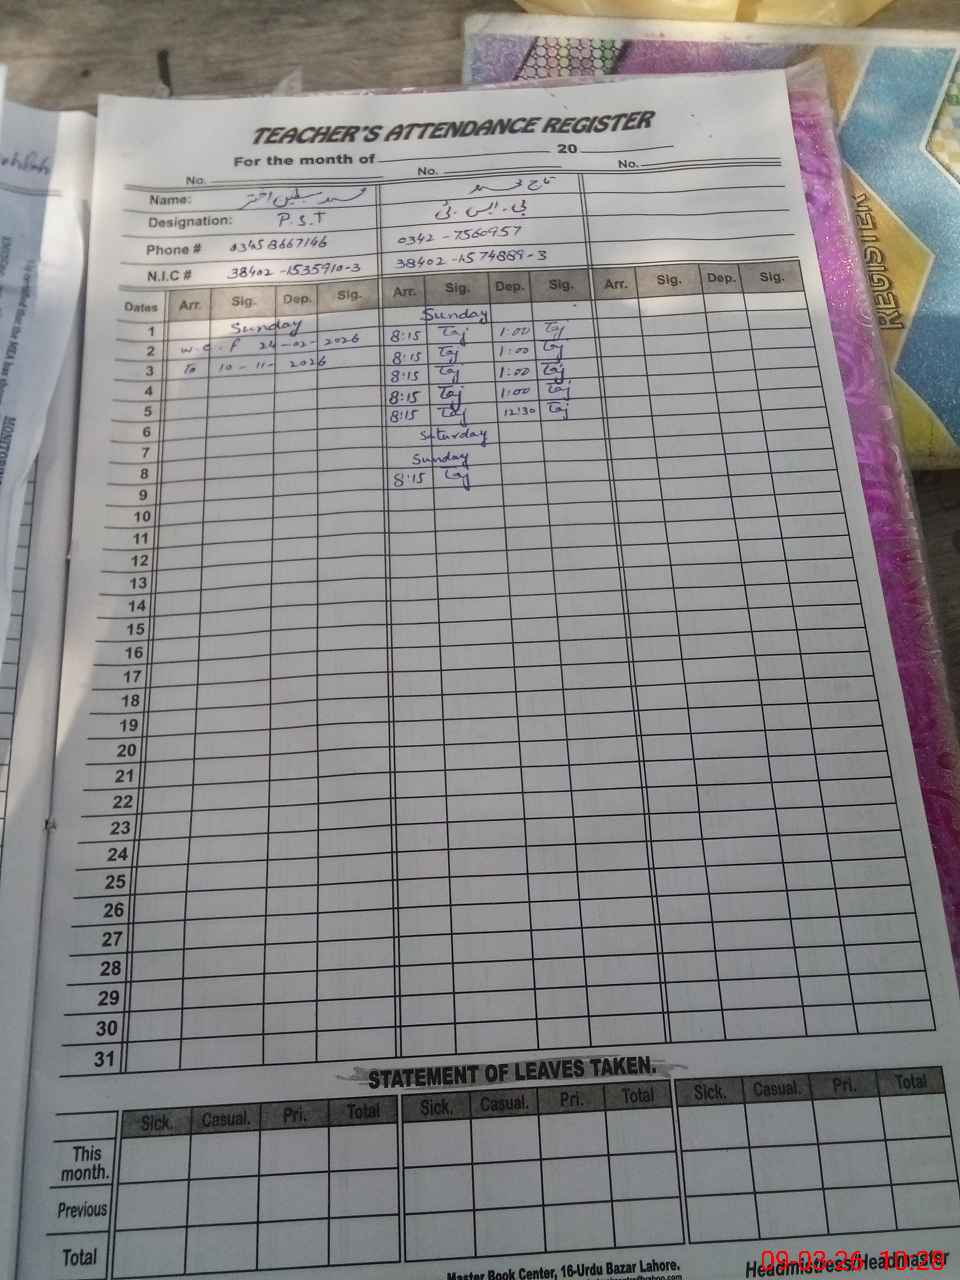 TEACHER'S ATTENDANCE REGISTER
For the month of 20
No. No. No.
Name: محمد سبطین اختر تاج محمد
Designation: P.S.T پی.ایس.ٹی
Phone # 03458667146 0342-7560957
N.I.C # 38402-1535910-3 38402-1574889-3
Dates Arr. Sig. Dep. Sig. Arr. Sig. Dep. Sig. Arr. Sig. Dep. Sig.
1 Sunday Sunday
2 w.e.f 24-02-2026 8:15 Taj 1:00 Taj
3 To 10-11-2026 8:15 Taj 1:00 Taj
4 8:15 Taj 1:00 Taj
5 8:15 Taj 1:00 Taj
6 8:15 Taj 12:30 Taj
7 Saturday
8 Sunday
9 8:15 Taj
10
11
12
13
14
15
16
17
18
19
20
21
22
23
24
25
26
27
28
29
30
31
STATEMENT OF LEAVES TAKEN.
Sick. Casual. Pri. Total Sick. Casual. Pri. Total Sick. Casual. Pri. Total
This month.
Previous
Total
Master Book Center, 16-Urdu Bazar Lahore.
Headmistress/Headmaster
REGISTER
MONITORING